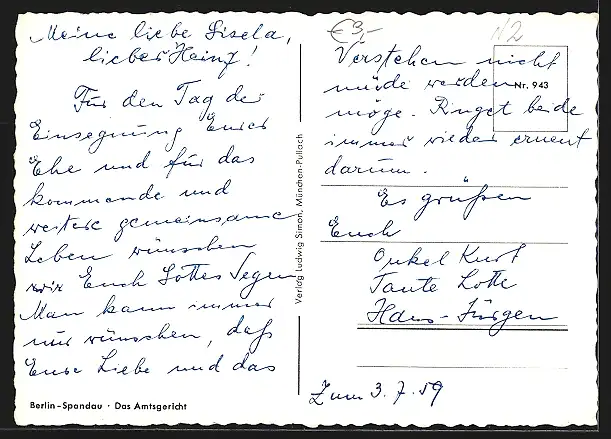 Meine liebe Gisela,
lieber Heinz!
Für den Tag der
Einsegnung Eurer
Ehe und für das
kommende und
weitere gemeinsame
Leben wünschen
wir Euch Gottes Segen
Man kann immer
nur wünschen, daß
Eure Liebe und das
Berlin-Spandau · Das Amtsgericht
Verlag Ludwig Simon, München-Pullach
€3,-
N2
Verstehen nicht
müde werden
Nr. 943
möge. Ringet beide
immer wieder erneut
darum.
Es grüßen
Euch
Onkel Kurt
Tante Lotte
Hans-Jürgen
Zum 3.7.59